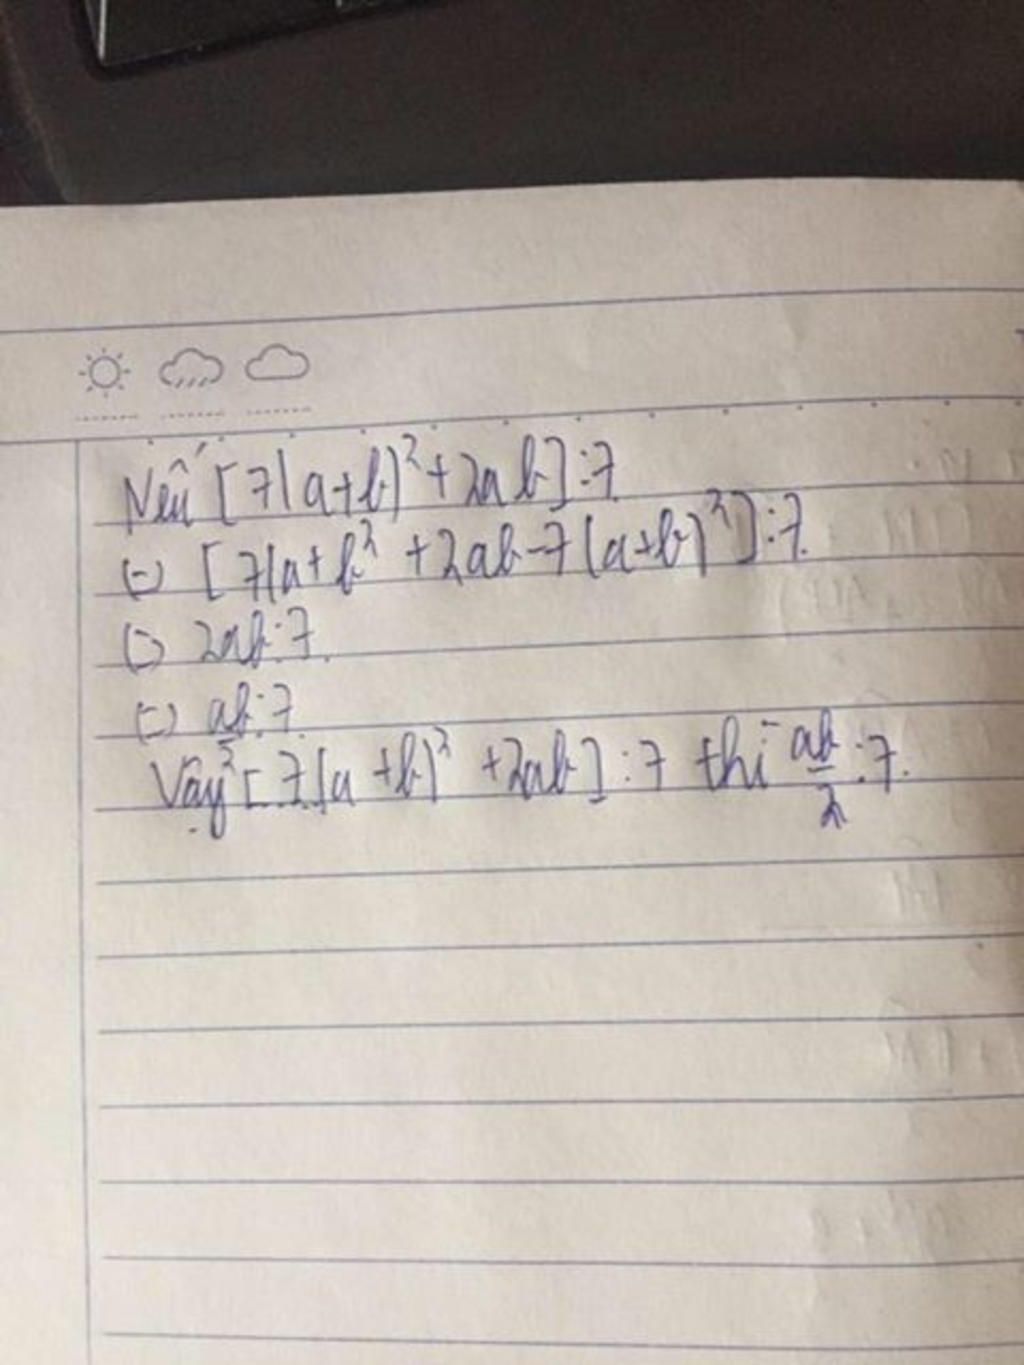 Nếu [7(a+b)² + 2ab] ⋮ 7
(=) [7(a+b² + 2ab - 7(a+b)²] ⋮ 7
(=) 2ab ⋮ 7
(=) ab ⋮ 7
Vậy [7(a+b)² + 2ab] ⋮ 7 thì ab/2 ⋮ 7.